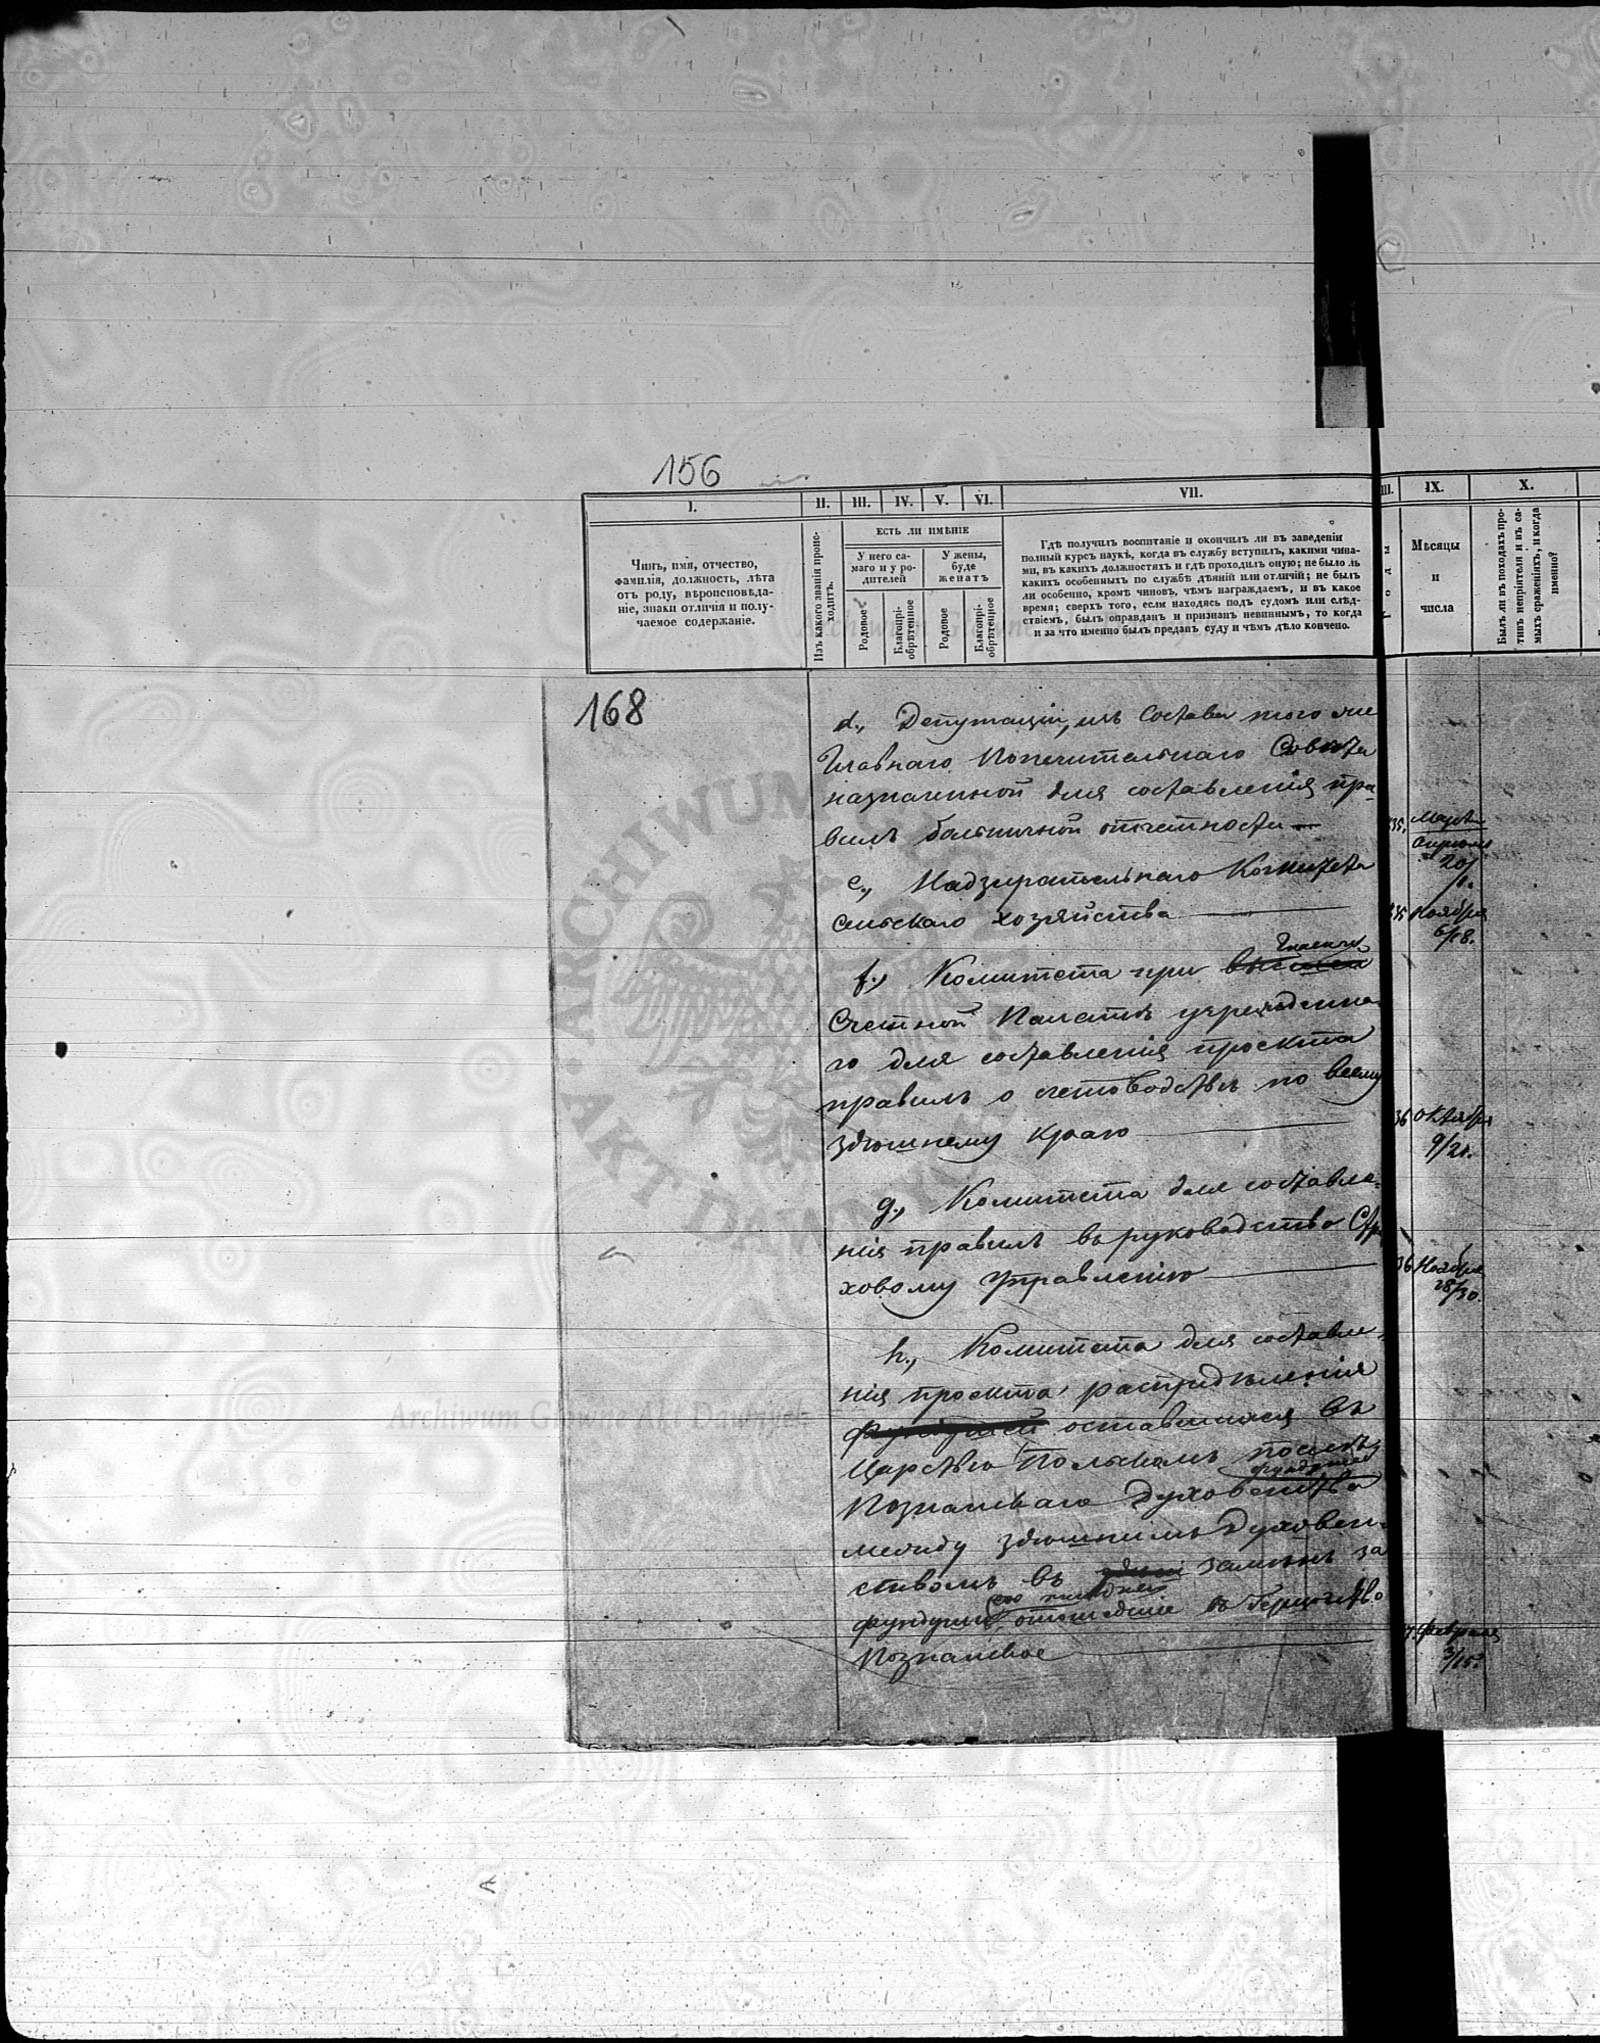 156
I.
II.
III.
IV.
V.
VI.
VII.
III.
IX.
X.
Чинъ, имя, отчество,
фамилія, должность, лѣта
отъ роду, вѣроисповѣда-
ніе, знаки отличія и полу-
чаемое содержаніе.
Изъ какого званія проис-
ходитъ.
ЕСТЬ ЛИ ИМѢНІЕ
У него са-
маго и у ро-
дителей
У жены,
буде
женатъ
Родовое
Благопрі-
обрѣтенное
Родовое
Благопрі-
обрѣтенное
Гдѣ получилъ воспитаніе и окончилъ ли въ заведеніи
полный курсъ наукъ, когда въ службу вступилъ, какими чина-
ми, въ какихъ должностяхъ и гдѣ проходилъ оную; не было ль
какихъ особенныхъ по службѣ дѣяній или отличій; не былъ
ли особенно, кромѣ чиновъ, чѣмъ награждаемъ, и въ какое
время; сверхъ того, если находясь подъ судомъ или слѣд-
ствіемъ, былъ оправданъ и признанъ невиннымъ, то когда
и за что именно былъ преданъ суду и чѣмъ дѣло кончено.
Мѣсяцы
и
числа
Былъ ли въ походахъ про-
тивъ непріятеля и въ са-
мыхъ сраженіяхъ, и когда
именно?
168
d., Депутаціи, изъ Состава того же
Главнаго Попечительнаго Совѣта
назначенной для составленія пра-
вилъ больничной отчетности
35. Мартъ
Апрѣль
20/1.
e., Надзирательнаго Комитета
сельскаго хозяйства
35 Ноября
6/18.
f., Комитета при
Счетной Палатѣ учрежденна-
го для составленія проекта
правилъ о счетоводствѣ по всему
здѣшнему краю
36 Октября
9/21.
g., Комитета для составле-
нія правилъ въ руководство Стра
ховому Управленію
36 Ноября
18/30.
h., Комитета для составле-
нія проекта, распредѣленія
оставшихся въ
Царствѣ Польскомъ послѣ
фундушей
Познанскаго Духовенства
между здѣшнимъ Духовен-
ствомъ въ замѣнъ за
фундуши отошедшіе въ Герцогство
Познанское
Февраля
3/15.
ARCHIWUM
AKT DAWNYCH
Archiwum Główne Akt Dawnych